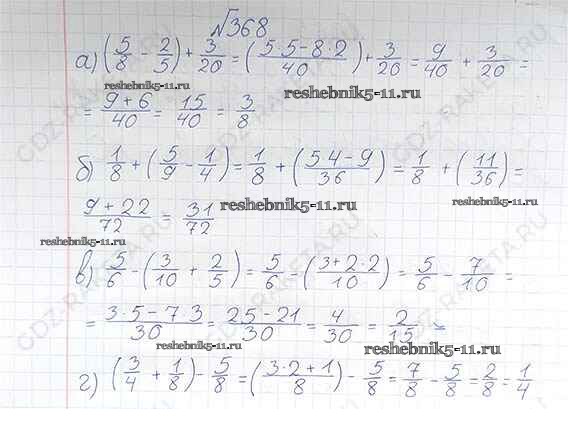 №368
а) (5/8 - 2/5) + 3/20 = (5·5-8·2/40) + 3/20 = 9/40 + 3/20 =
reshebnik5-11.ru reshebnik5-11.ru
= 9+6/40 = 15/40 = 3/8
reshebnik5-11.ru
б) 1/8 + (5/9 - 1/4) = 1/8 + (5 4-9/36) = 1/8 + (11/36) =
9+22/72 = 31/72
reshebnik5-11.ru
reshebnik5-11.ru
в) 5/6 - (3/10 + 2/5) = 5/6 = (3+2·2/10) = 5/6 - 7/10 =
= 3·5-7 3/30 = 25-21/30 = 4/30 = 2/15
reshebnik5-11.ru
reshebnik5-11.ru
г) (3/4 + 1/8) - 5/8 = (3·2+1/8) - 5/8 = 7/8 - 5/8 = 2/8 = 1/4
GDZ-RAKETA.RU